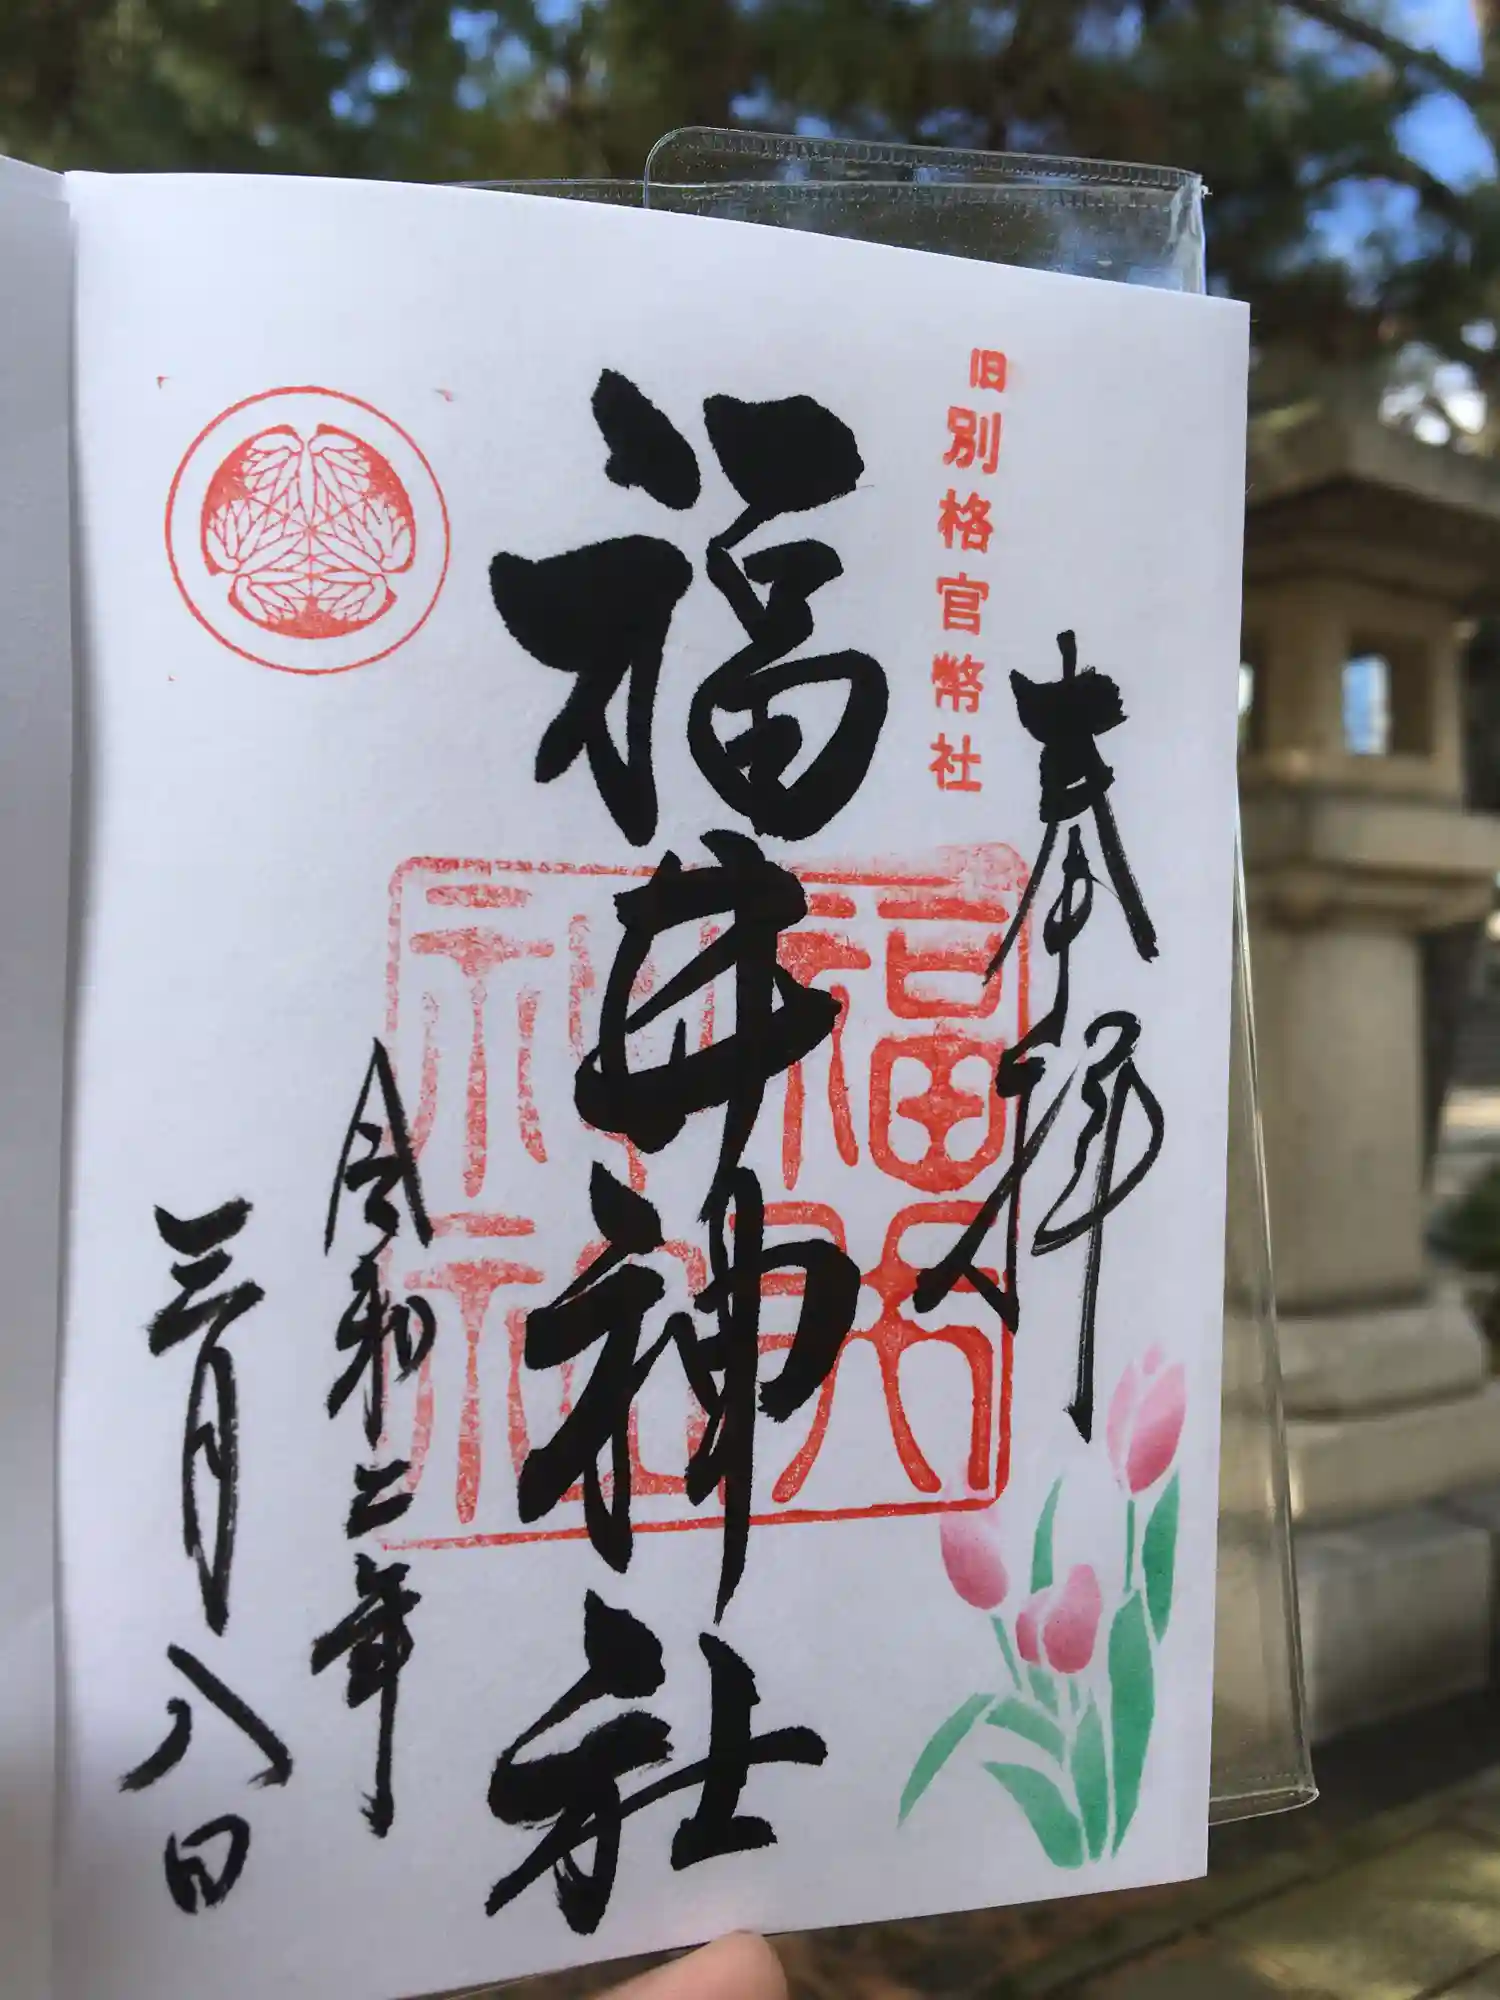 奉拝
旧別格官幣社
福井神社
福井神社
令和二年
三月八日